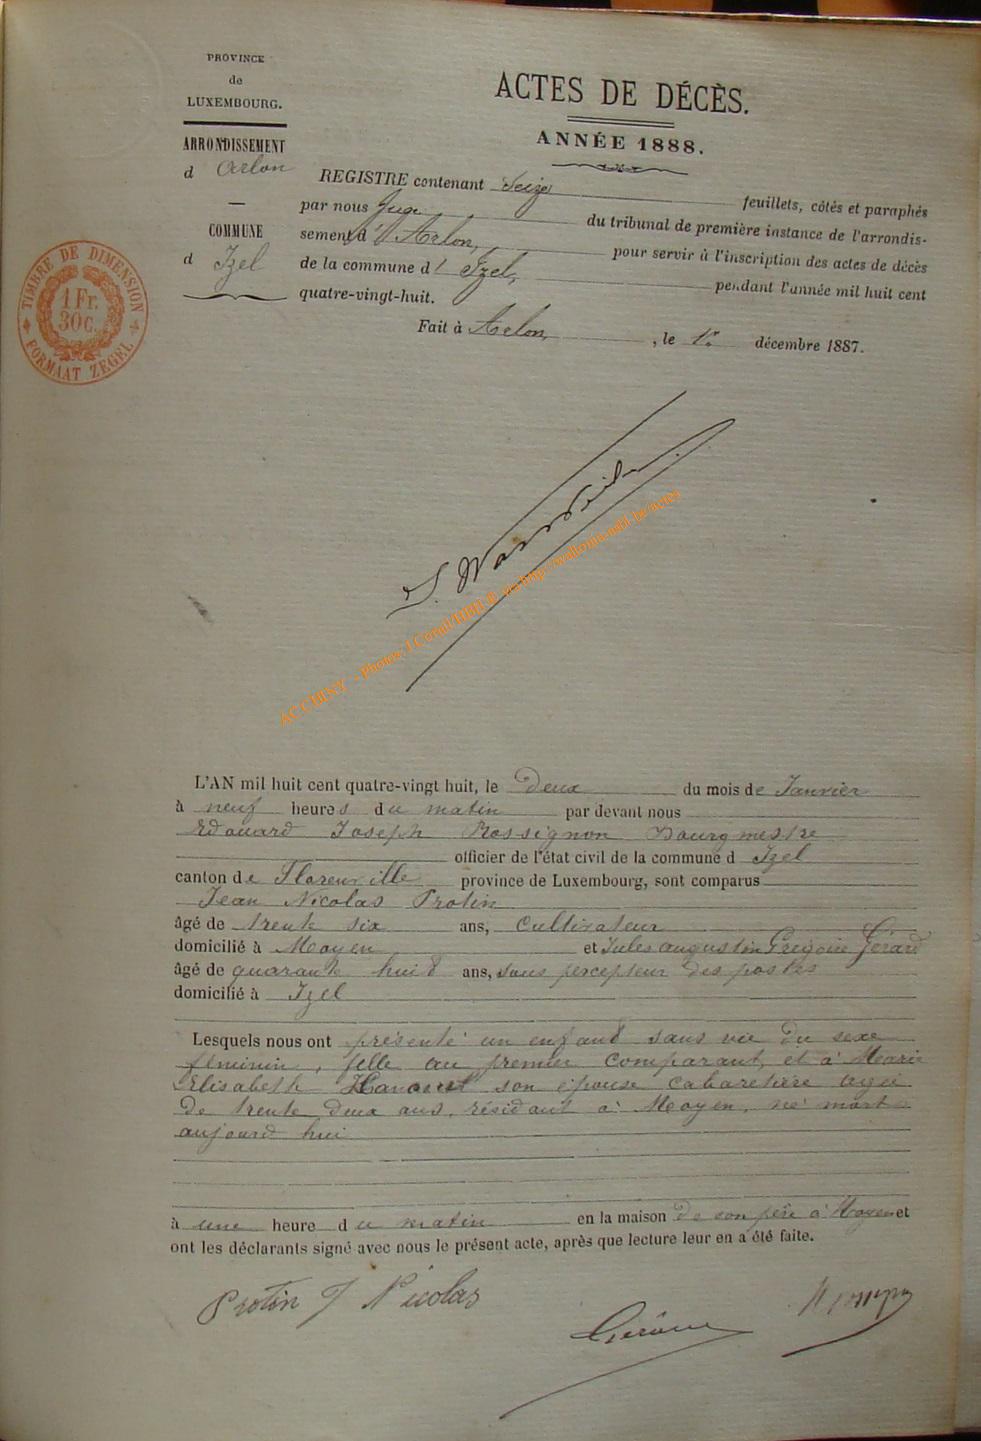 PROVINCE
de
LUXEMBOURG.
ARRONDISSEMENT
d Arlon
COMMUNE
d Izel
TIMBRE DE DIMENSION
1 Fr.
30 c.
FORMAAT ZEGEL
ACTES DE DÉCÈS.
ANNÉE 1888.
REGISTRE contenant Seize feuillets, côtés et paraphés
par nous Juge du tribunal de première instance de l'arrondis-
sement d'Arlon, pour servir à l'inscription des actes de décès
de la commune d' Izel, pendant l'année mil huit cent
quatre-vingt-huit.
Fait à Arlon, , le 1r décembre 1887.
ACCHINY - Photos: via http://wallonia-asbl.be/actes
L'AN mil huit cent quatre-vingt huit, le Deux du mois de Janvier
à neuf heures du matin par devant nous
Edouard Joseph Rossignon Bourgmestre
officier de l'état civil de la commune d Izel
canton de Florenville province de Luxembourg, sont comparus
Jean Nicolas Protin
âgé de trente six ans, Cultivateur
domicilié à Moyen et Jules augustin Grégoire Gérard
âgé de quarante huid ans, sous percepteur des postes
domicilié à Izel
Lesquels nous ont présenté un enfand sans vie du sexe
féminin, fille au premier comparant, et à Marie
Elisabeth son épouse cabaretière agée
De trente deux ans, résidant à Moyen, né mort
aujourd hui
à une heure du matin en la maison de son père à Moyen et
ont les déclarants signé avec nous le présent acte, après que lecture leur en a été faite.
Protin J Nicolas
Gérard